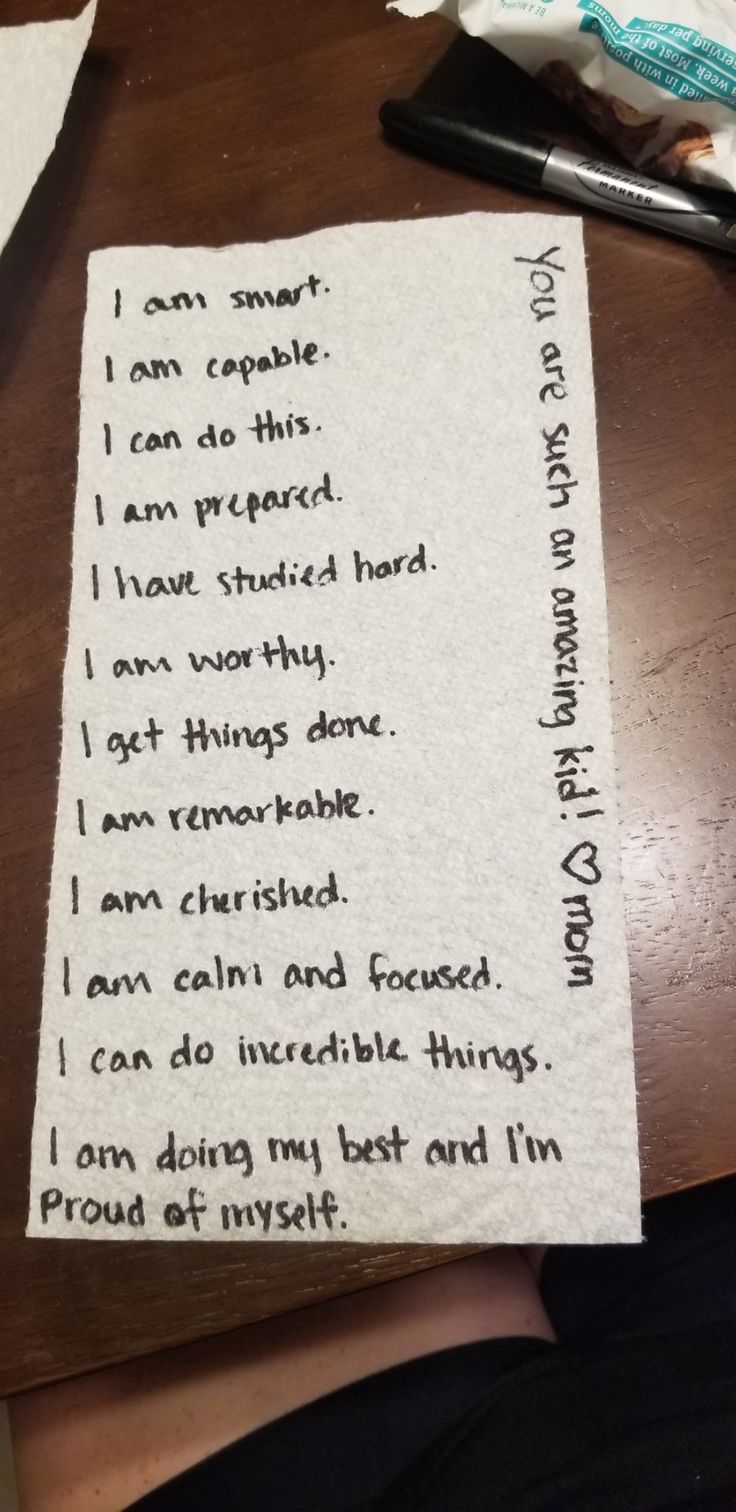 I am smart.
I am capable.
I can do this.
I am prepared.
I have studied hard.
I am worthy.
I get things done.
I am remarkable.
I am cherished.
I am calm and focused.
I can do incredible things.
I am doing my best and I'm
Proud of myself.
You are such an amazing kid! ♡ mom
Permanent
MARKER
BE A
in with
a week. Most of the moms
serving per day.